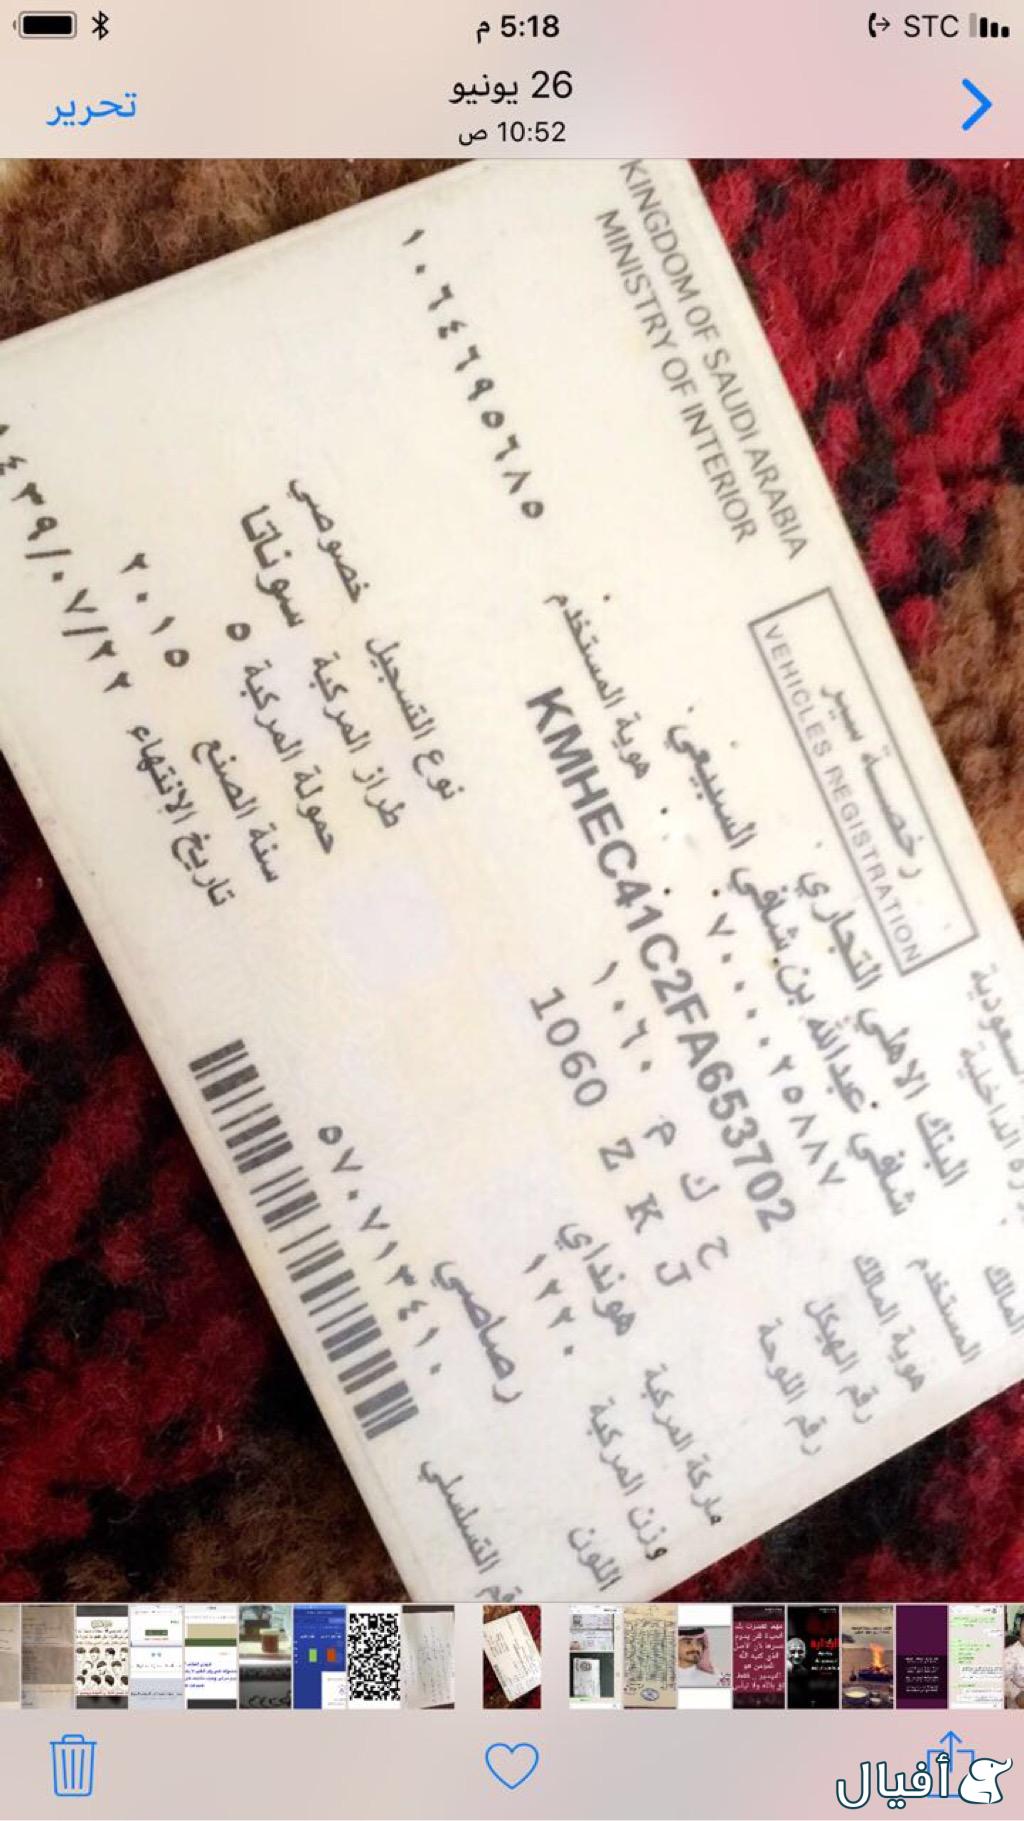 5:18 م
STC
26 يونيو
10:52 ص
تحرير
KINGDOM OF SAUDI ARABIA
MINISTRY OF INTERIOR
رخصة سير
VEHICLES REGISTRATION
المالك البنك الاهلي التجاري
المستخدم شفي عبدالله بن شفي السبيعي
هوية المالك ٧٠٠٠٠٢٥٨٨٧ هوية المستخدم ١٠٦٤٦٩٥٦٨٥
رقم الهيكل KMHEC41C2FA653702
رقم اللوحة ح ك م ١٠٦٠
J K Z 1060
نوع التسجيل خصوصي
ماركة المركبة هونداي طراز المركبة سوناتا
وزن المركبة ١٢٢٠ حمولة المركبة ٥
اللون رصاصي سنة الصنع ٢٠١٥
تاريخ الانتهاء ١٤٣٩/٠٧/٢٢
التسلسلي ٥٧٠٧١٣٤١٠
أفيال